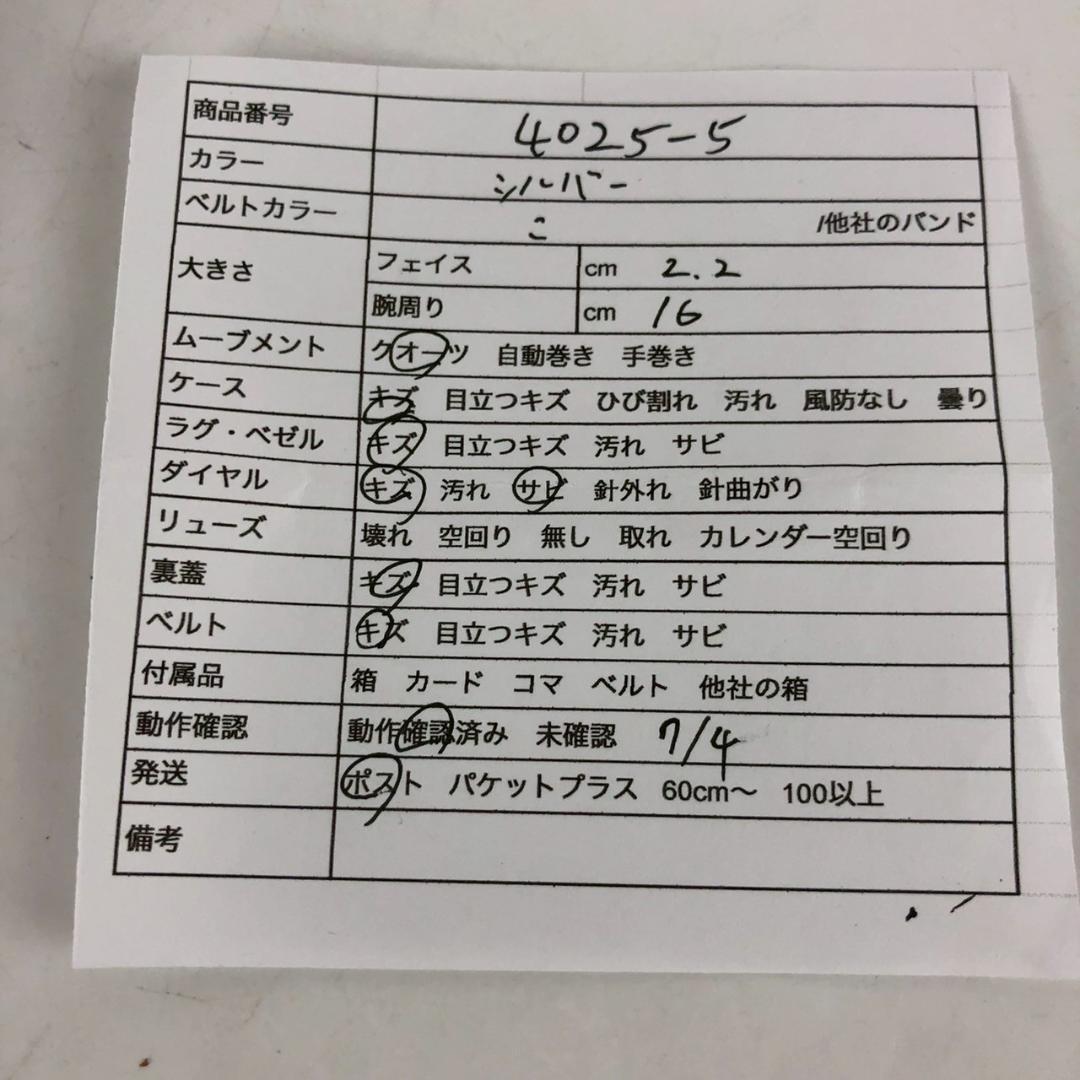 商品番号 4025-5
カラー シルバー
ベルトカラー こ /他社のバンド
大きさ フェイス cm 2.2
腕周り cm 16
ムーブメント クオーツ 自動巻き 手巻き
ケース キズ 目立つキズ ひび割れ 汚れ 風防なし 曇り
ラグ・ベゼル キズ 目立つキズ 汚れ サビ
ダイヤル キズ 汚れ サビ 針外れ 針曲がり
リューズ 壊れ 空回り 無し 取れ カレンダー空回り
裏蓋 キズ 目立つキズ 汚れ サビ
ベルト キズ 目立つキズ 汚れ サビ
付属品 箱 カード コマ ベルト 他社の箱
動作確認 動作確認済み 未確認 7/4
発送 ポスト パケットプラス 60cm〜 100以上
備考